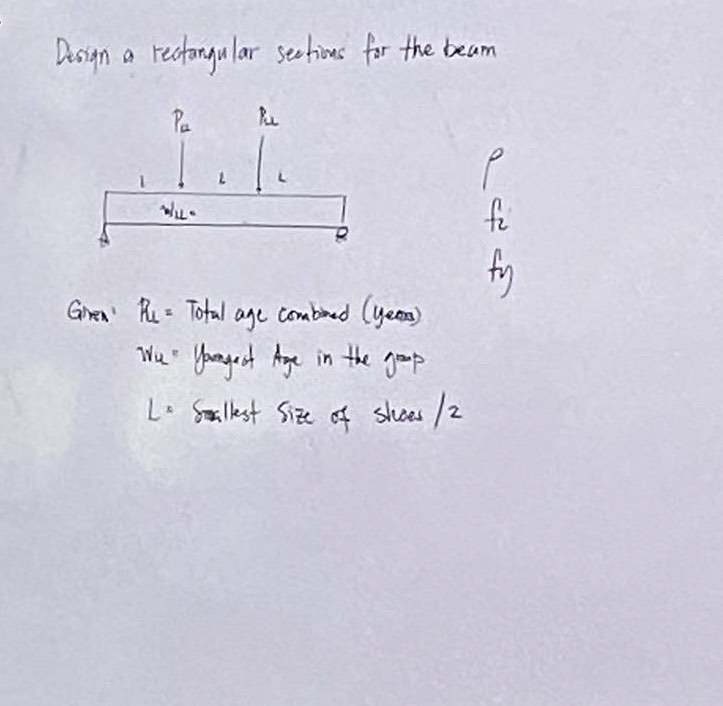 Design a rectangular sections for the beam
PLL PLL
L L L
WLL =
ρ
fc'
fy
Given: PLL = Total age combined (years)
WLL = Youngest Age in the group
L = Smallest Size of shoes /2